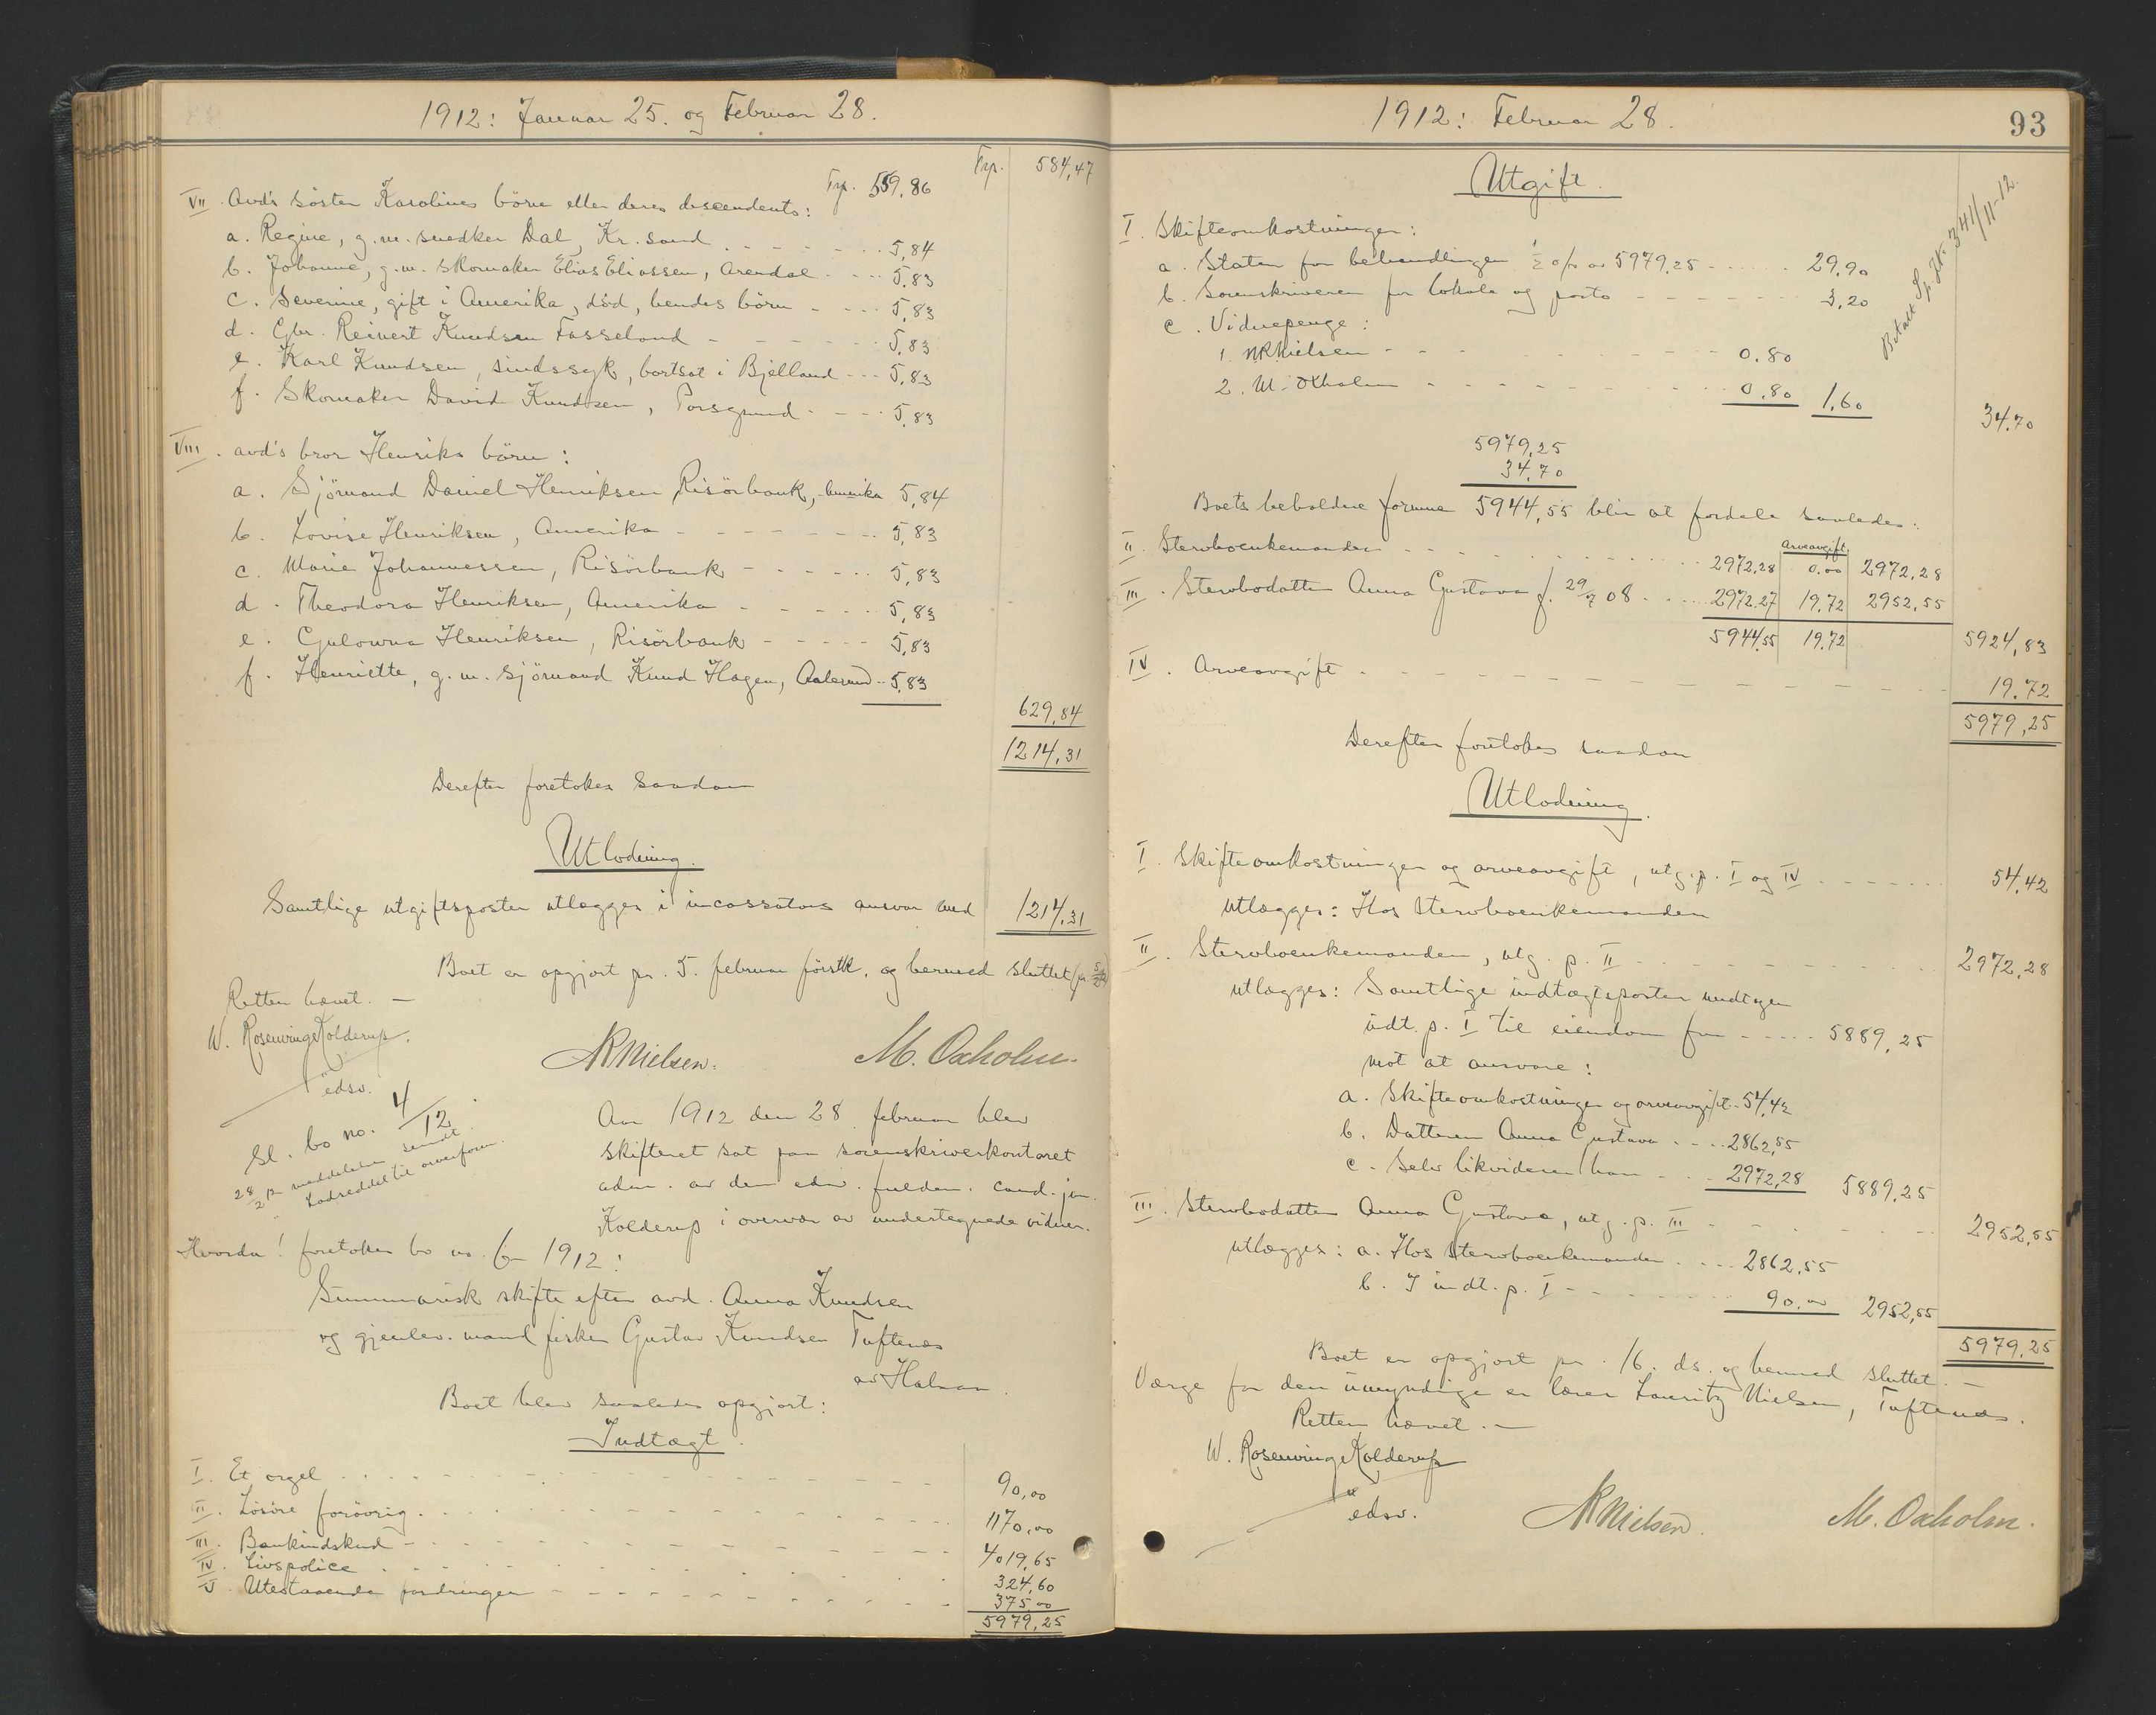 1912: Januar 25. og Februar 28.
Trp. 559,86
Trp. 584,47
VII. Avd's söster Karolines börn eller deres descendents:
a. Regine, g.m. snedker Dal, Kr.sand 5,84
b. Johanne, g.m. skomaker Elias Eliassen, Arendal 5,83
c. Severine, gift i Amerika, död, hendes börn 5,83
d. Gbr. Reinert Knudsen Fasseland 5,83
e. Karl Knudsen, sindssyk, bortsat i Bjelland 5,83
f. Skomaker David Knudsen, Porsgrund 5,83
VIII. avd's bror Henriks börn:
a. Sjömand Daniel Henriksen Risörbank, Amerika 5,84
b. Lovise Henriksen, Amerika 5,83
c. Marie Johannessen, Risörbank 5,83
d. Theodora Henriksen, Amerika 5,83
e. Gulowna Henriksen, Risörbank 5,83
f. Henriette, g.m. sjömand Knud Hagen, Aalesund 5,83
629,84
1214,31
Derefter foretokes saadan
Utlodning.
Samtlige utgiftsposter utlægges i incassators ansvar med 1214,31
Boet er opgjort pr. 5. februar förstk. og hermed sluttet
Retten hævet. —
W. Rosenvinge Kolderup.
edsv.
NRNielsen.
M. Oxholm.
Sl. bo no. 4/12
28/2 12 meddelelse sendt
Lodseddel til overform.
Aar 1912 den 28. februar blev
skifteret sat paa sorenskriverkontoret
adm. av den edsv. fuldm. cand. jur.
Kolderup i overvær av undertegnede vidner.
Hvorda! foretokes bo no. 6 – 1912:
Summarisk skifte efter avd. Anna Knudsen
og gjenlev. mand fisker Gustav Knudsen Tuftenes
av Halsaa.
Boet blev saaledes opgjort:
Indtægt.
I. Et orgel 90,00
II. Lösöre forövrig 1170,00
III. Bankindskud 4019,65
IV. Livspolice 324,60
V. Utestaaende fordringer 375,00
5979,25
1912: Februar 28.
93
Utgift.
Betalt Sp. Jr. 341/11-12.
I. Skifteomkostninger:
a. Staten for behandlingen ½ o/o av 5979,25 29,90
b. Sorenskriveren for lokale og porto 3,20
c. Vidnepenge:
1. NRNielsen 0.80
2. M. Oxholm 0.80 1,60
34.70
5979,25
34,70
Boets beholdne formue 5944,55 blir at fordele saaledes:
Arveavgift
II. Sterboenkemanden 2972,28 0.00 2972,28
III. Sterbodatter Anna Gustava f. 29/7 08 2972.27 19,72 2952,55
5944,55 19,72 5924,83
IV. Arveavgift 19,72
5979,25
Derefter foretokes saadan
Utlodning.
I. Skifteomkostninger og arveavgift, utg.p. I og IV 54,42
utlægges: Hos sterboenkemanden
II. Sterboenkemanden, utg. p. II 2972,28
utlægges: Samtlige indtægtsposter undtagen
indt. p. I til eiendom for 5889,25
mot at ansvare:
a. Skifteomkostninger og arveavgift 54,42
b. Datteren Anna Gustava 2862,55
c. Selv likviderer han 2972,28 5889,25
III. Sterbodatter Anna Gustava, utg. p. III 2952,55
utlægges: a. Hos sterboenkemanden 2862,55
b. I indt. p. I 90,00 2952,55
5979,25
Boet er opgjort pr. 16. ds. og hermed sluttet. —
Værge for den umyndige er lærer Lauritz Nielsen, Tuftenes.
Retten hævet. —
W. Rosenvinge Kolderup
edsv.
NRNielsen.
M. Oxholm.